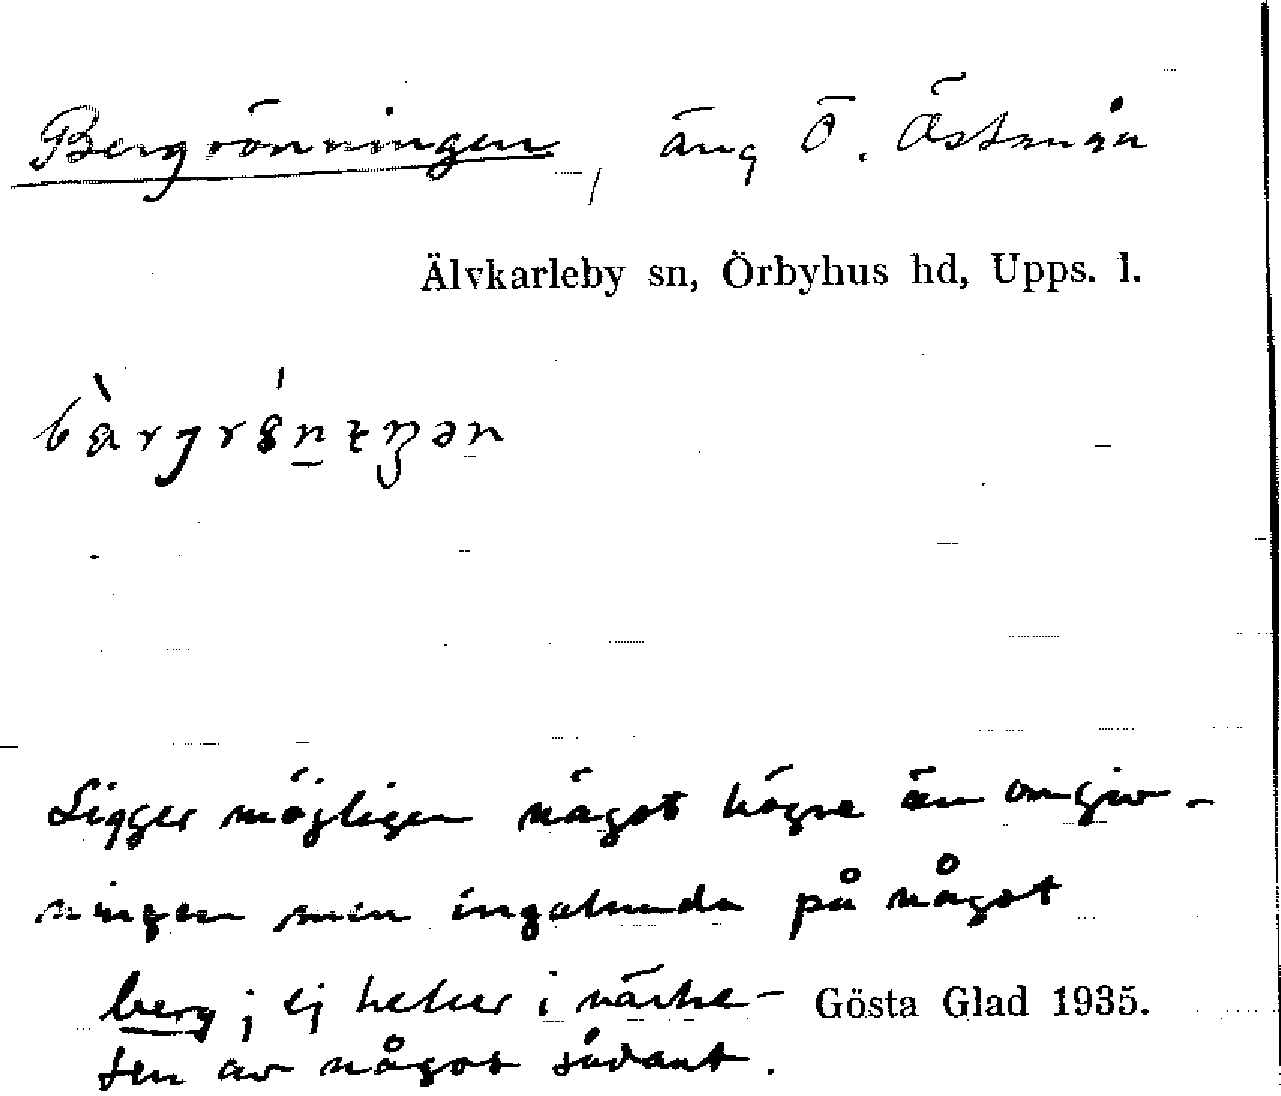 Bergrönningen, äng Ö. Ästmån
Älvkarleby sn, Örbyhus hd, Upps. l.
Ligger möjligen något högre än omgiv-
ningen men ingalunda på något
berg; ej heller i närhe- Gösta Glad 1935.
ten av något sådant.